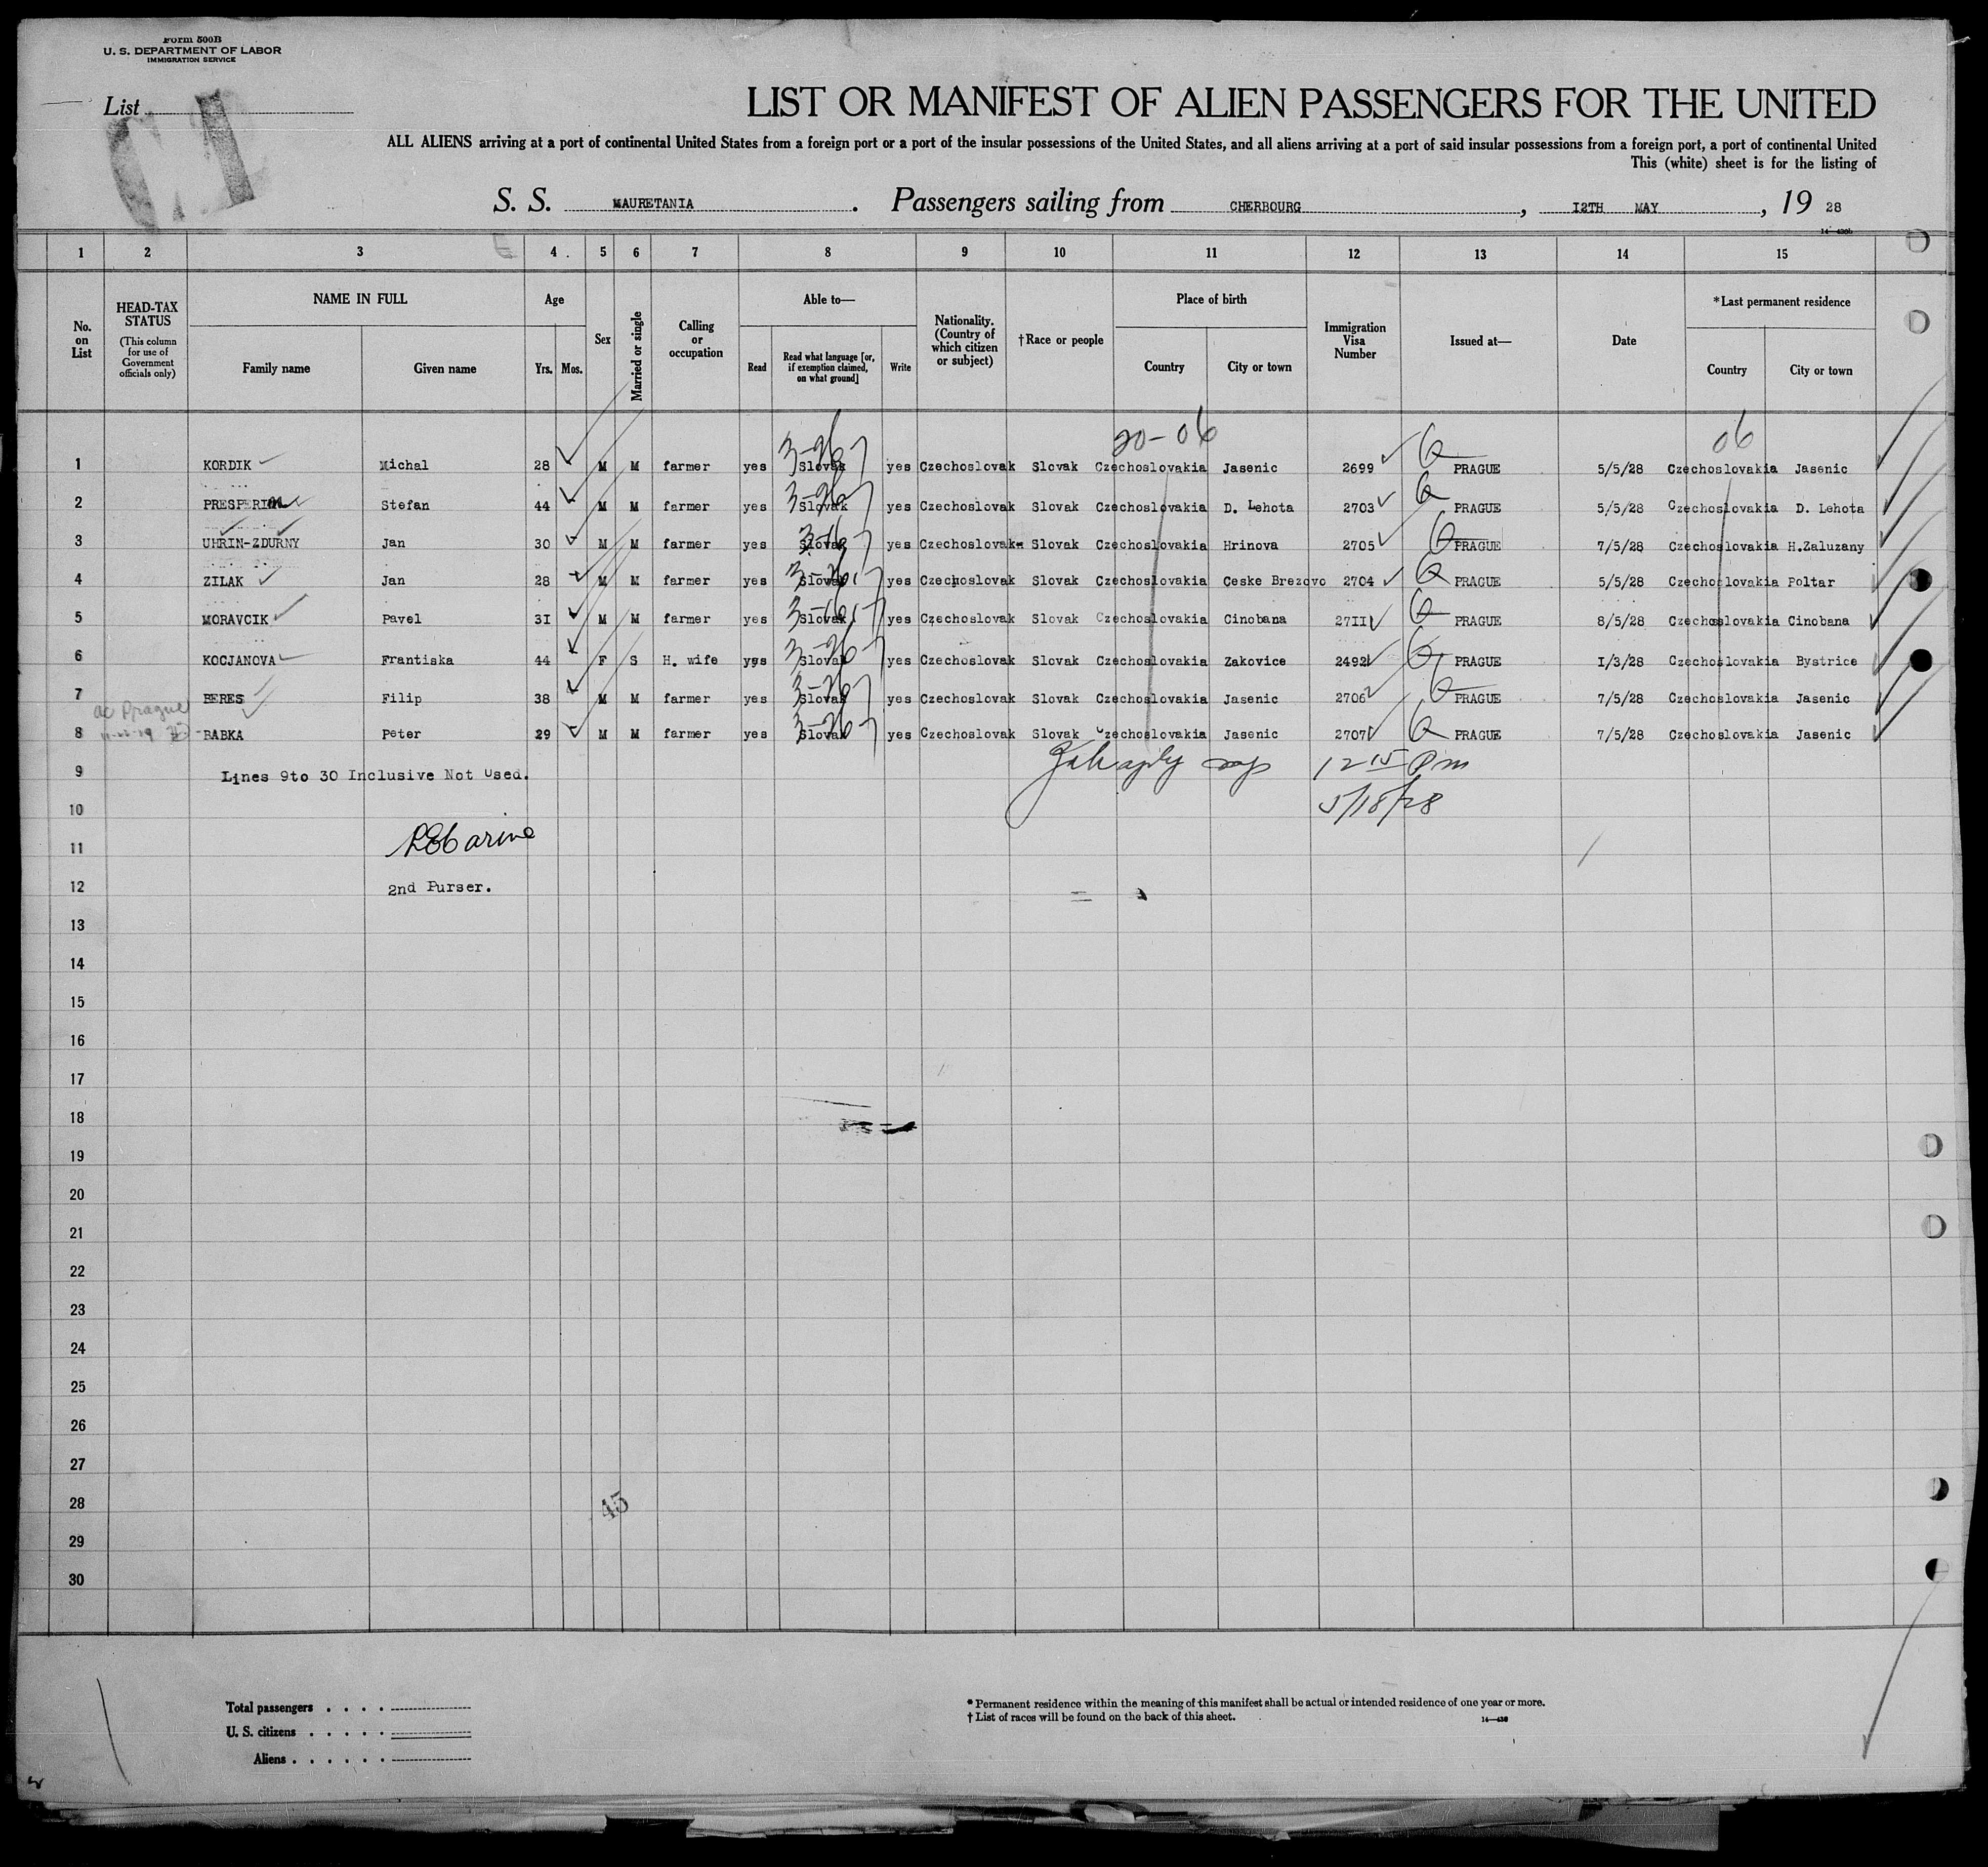 Form 500B
U. S. DEPARTMENT OF LABOR
IMMIGRATION SERVICE
List
LIST OR MANIFEST OF ALIEN PASSENGERS FOR THE UNITED
ALL ALIENS arriving at a port of continental United States from a foreign port or a port of the insular possessions of the United States, and all aliens arriving at a port of said insular possessions from a foreign port, a port of continental United
This (white) sheet is for the listing of
S. S. MAURETANIA. Passengers sailing from CHERBOURG, I2TH MAY, 19 28
1 2 3 4 5 6 7 8 9 10 11 12 13 14 15
No. on List
HEAD-TAX STATUS
(This column for use of Government officials only)
NAME IN FULL
Family name Given name
Age
Yrs. Mos.
Sex
Married or single
Calling or occupation
Able to—
Read
Read what language [or, if exemption claimed, on what ground]
Write
Nationality. (Country of which citizen or subject)
†Race or people
Place of birth
Country City or town
Immigration Visa Number
Issued at—
Date
*Last permanent residence
Country City or town
20-06 06
1 KORDIK Michal 28 M M farmer yes Slovak yes Czechoslovak Slovak Czechoslovakia Jasenic 2699 PRAGUE 5/5/28 Czechoslovakia Jasenic
2 Stefan 44 M M farmer yes Slovak yes Czechoslovak Slovak Czechoslovakia D. Lehota 2703 PRAGUE 5/5/28 Czechoslovakia D. Lehota
3 UHRIN-ZDURNY Jan 30 M M farmer yes Slovak yes Czechoslovak Slovak Czechoslovakia Hrinova 2705 PRAGUE 7/5/28 Czechoslovakia H.Zaluzany
4 ZILAK Jan 28 M M farmer yes Slovak yes Czechoslovak Slovak Czechoslovakia Ceske Brezovo 2704 PRAGUE 5/5/28 Czechoslovakia Poltar
5 MORAVCIK Pavel 3I M M farmer yes Slovak yes Czechoslovak Slovak Czechoslovakia Cinobana 27II PRAGUE 8/5/28 Czechoslovakia Cinobana
6 KOCJANOVA Frantiska 44 F S H. wife yes Slovak yes Czechoslovak Slovak Czechoslovakia Zakovice 2492 PRAGUE I/3/28 Czechoslovakia Bystrice
7 BERES Filip 38 M M farmer yes Slovak yes Czechoslovak Slovak Czechoslovakia Jasenic 2706 PRAGUE 7/5/28 Czechoslovakia Jasenic
Prague
8 BABKA Peter 29 M M farmer yes Slovak yes Czechoslovak Slovak Czechoslovakia Jasenic 2707 PRAGUE 7/5/28 Czechoslovakia Jasenic
9 Lines 9to 30 Inclusive Not Used. 12 15 Pm
10 5/18/28
11
12 2nd Purser.
13
14
15
16
17
18
19
20
21
22
23
24
25
26
27
28 45
29
30
Total passengers . . . .
U. S. citizens . . . . .
Aliens . . . . . .
* Permanent residence within the meaning of this manifest shall be actual or intended residence of one year or more.
† List of races will be found on the back of this sheet.